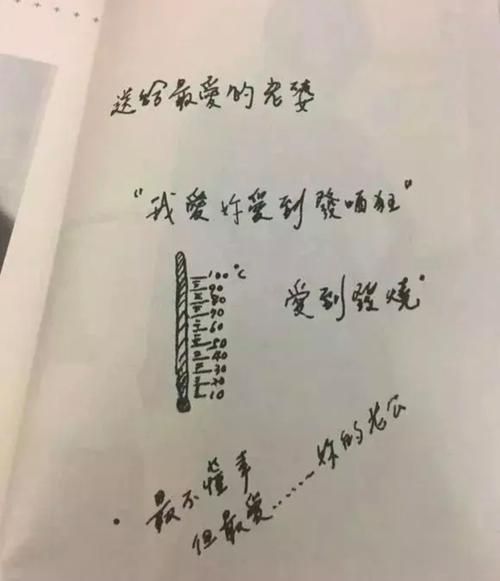 送给最愛的老婆
"我愛妳愛到發哂狂"
100 °C
90
80
70
60
50
40
30
20
10
愛到發燒"
最不懂事
但最愛......妳的老公